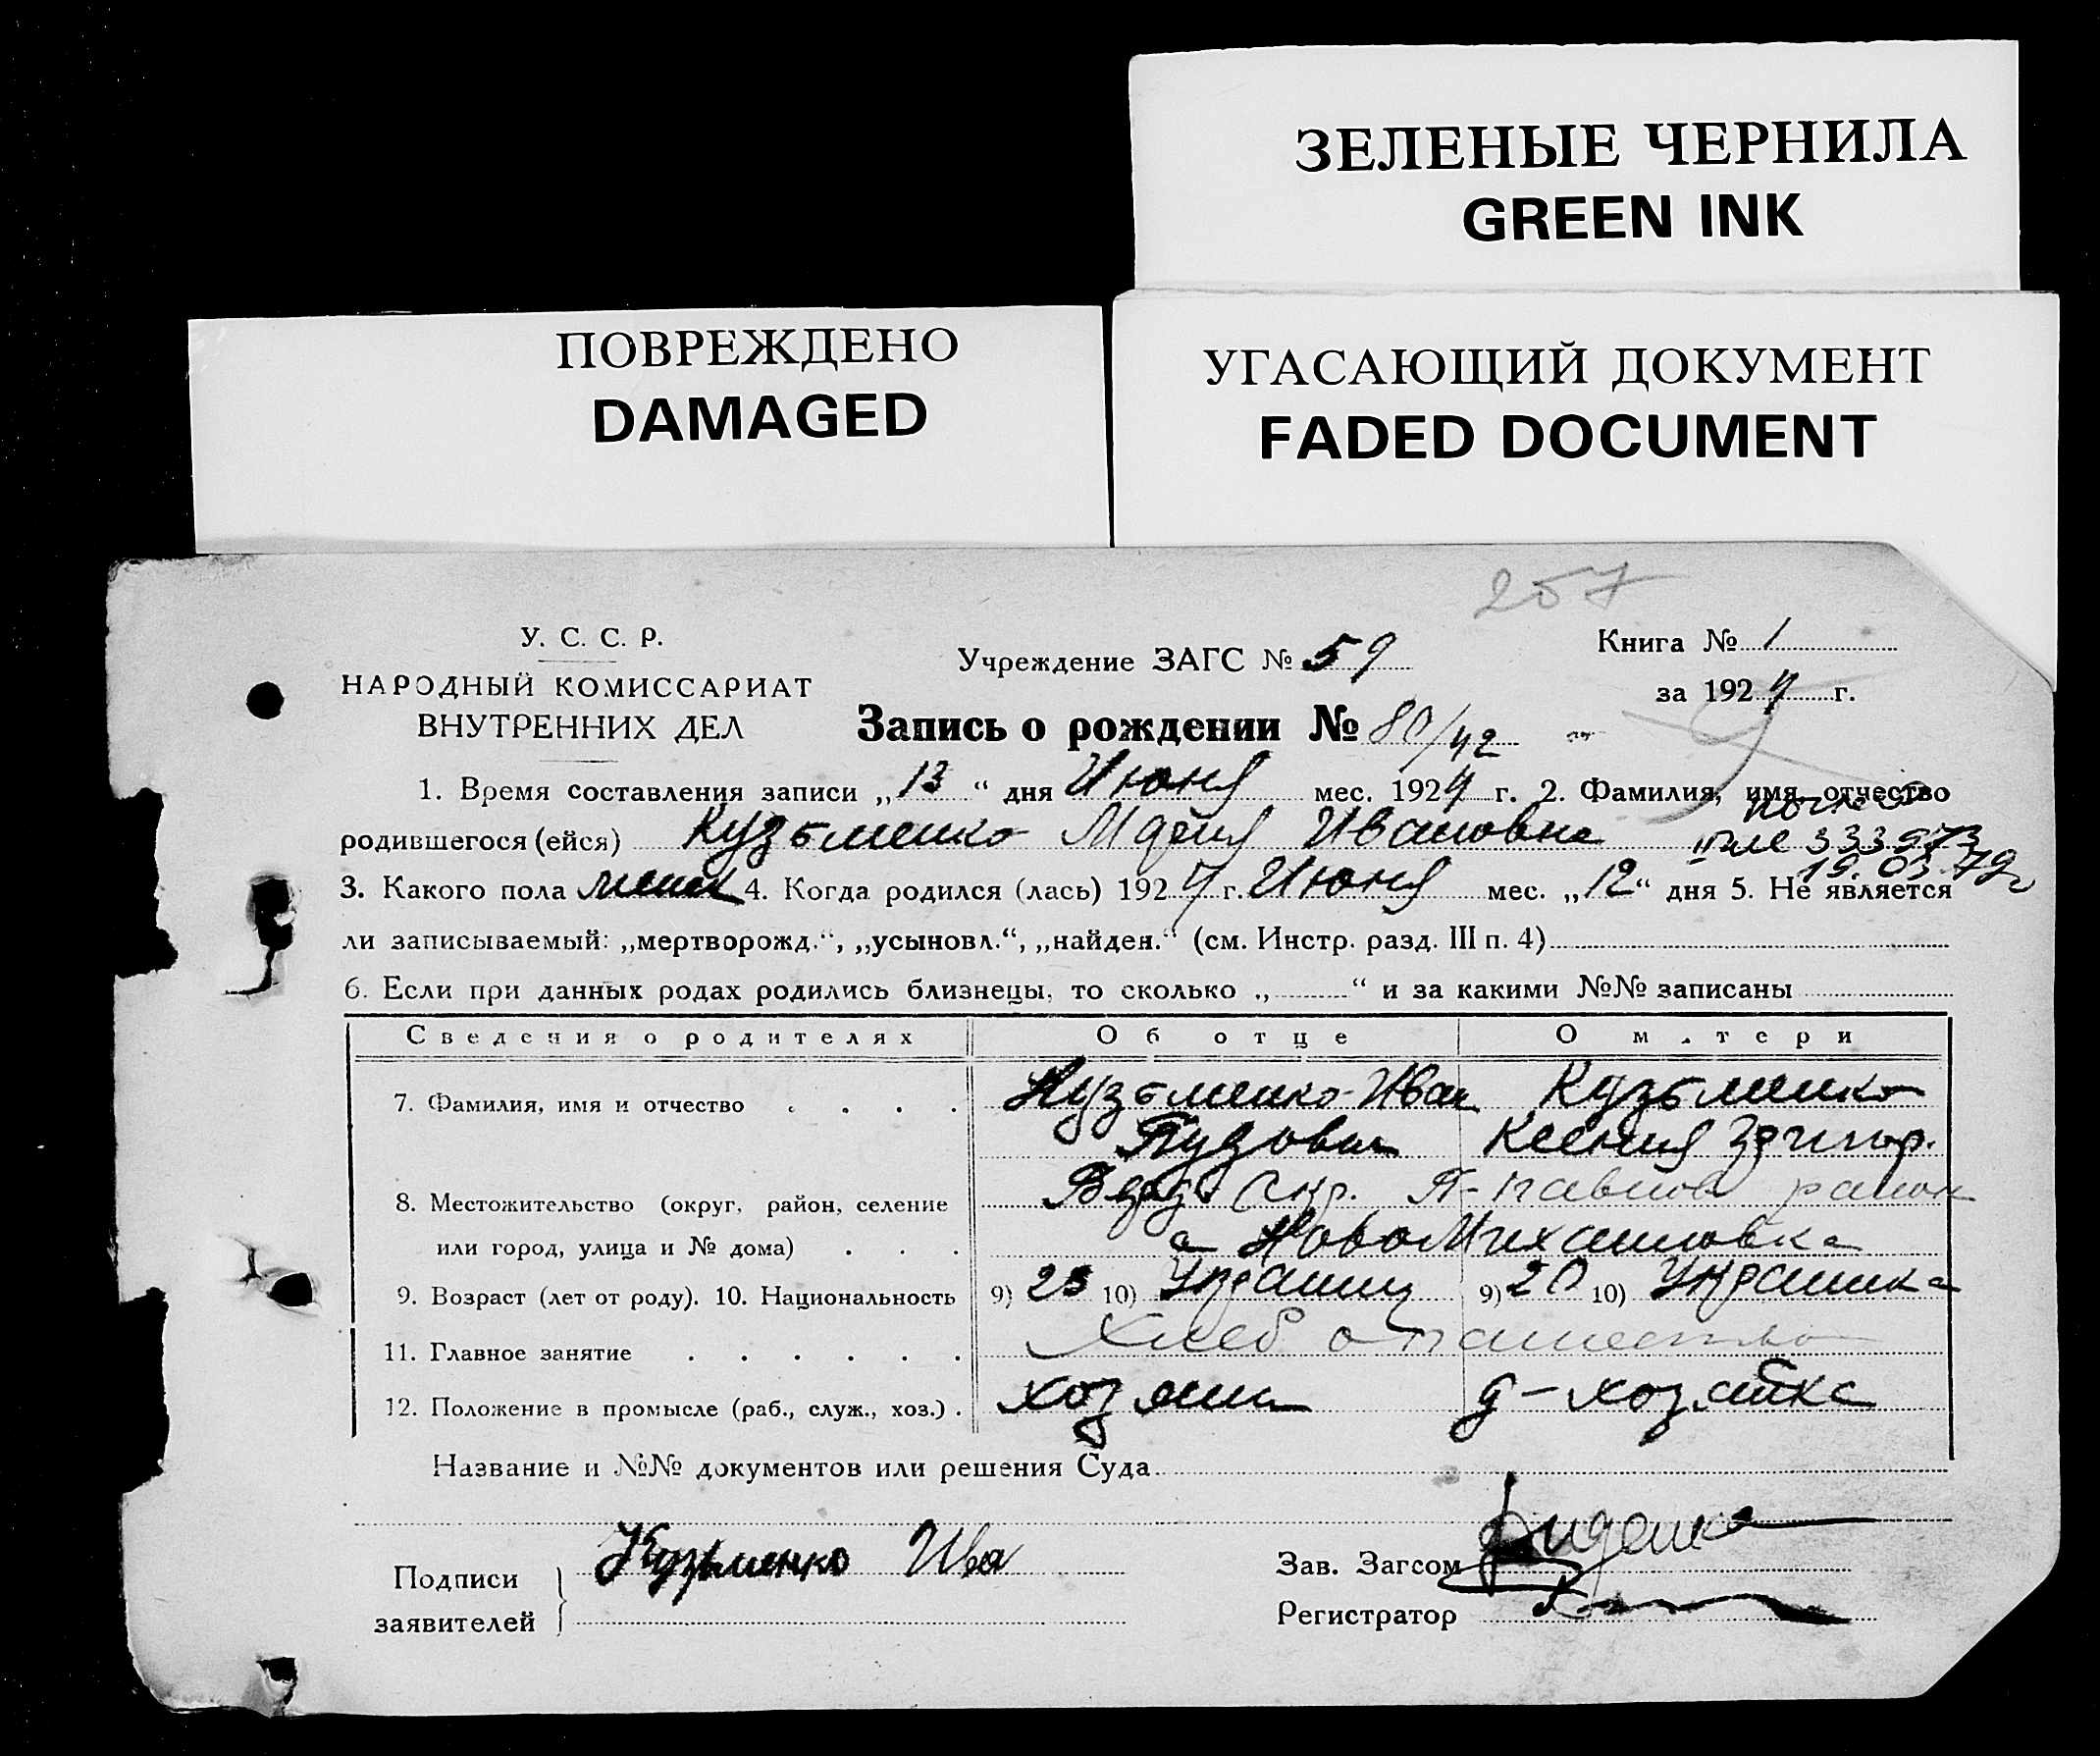 ЗЕЛЕНЫЕ ЧЕРНИЛА
GREEN INK
ПОВРЕЖДЕНО
DAMAGED
УГАСАЮЩИЙ ДОКУМЕНТ
FADED DOCUMENT
257
У. С. С. Р.
НАРОДНЫЙ КОМИССАРИАТ
ВНУТРЕННИХ ДЕЛ
Учреждение ЗАГС № 59
Книга № 1
за 192 г.
Запись о рождении № 80/42
1. Время составления записи „13“ дня Июня мес. 192 г. 2. Фамилия, имя отчество
родившегося (ейся) Кузьменко Мария Ивановна
333973
19.03.79г
3. Какого пола женск 4. Когда родился (лась) 192 г. Июня мес. „12“ дня 5. Не является
ли записываемый: „мертворожд.“, „усыновл.“, „найден.“ (см. Инстр. разд. III п. 4)
6. Если при данных родах родились близнецы, то сколько „ “ и за какими №№ записаны
Сведения о родителях Об отце О матери
7. Фамилия, имя и отчество Кузьменко Иван Кузьменко
Ксения Григор.
8. Местожительство (округ, район, селение Окр. П-павлов район
или город, улица и № дома) НовоМихайловка
9. Возраст (лет от роду). 10. Национальность 9) 25 10) Украинец 9) 20 10) Украинка
11. Главное занятие Хлебопашество
12. Положение в промысле (раб., служ., хоз.) хозяин д-хозяйка
Название и №№ документов или решения Суда
Подписи заявителей Кузьменко Ива
Зав. Загсом
Регистратор